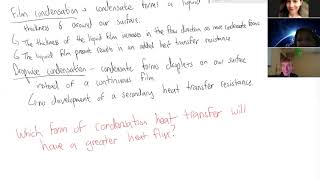 Film condensation → condensate forms a liquid
thickness δ around our surface.
↳ The thickness of the liquid film increases in the flow direction as more condensate forms
↳ The liquid film present results in an added heat transfer resistance
Dropwise condensation - condensate forms droplets on our surface
instead of a continuous film
↳ no development of a secondary heat transfer resistance.
Which form of condensation heat transfer will
have a greater heat flux?